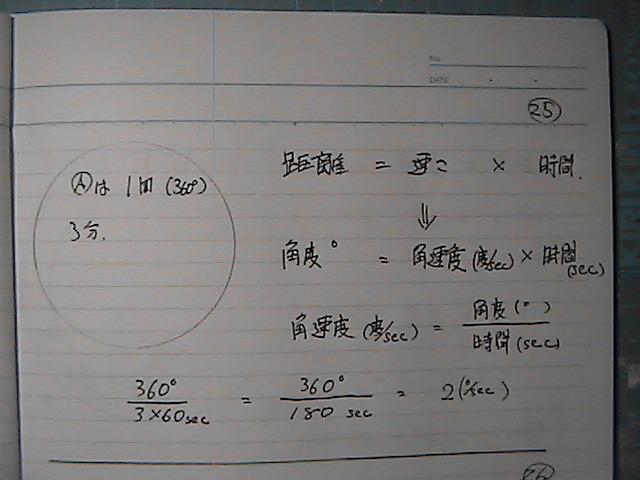 No.
DATE
㉕
距離 = 速さ × 時間.
Ⓐは 1回 (360°)
3分.
⇓
角度° = 角速度(度/sec) × 時間(sec)
角速度(度/sec) = 角度(°) / 時間(sec)
360° / 3×60sec = 360° / 180 sec = 2(°/sec)
㉖